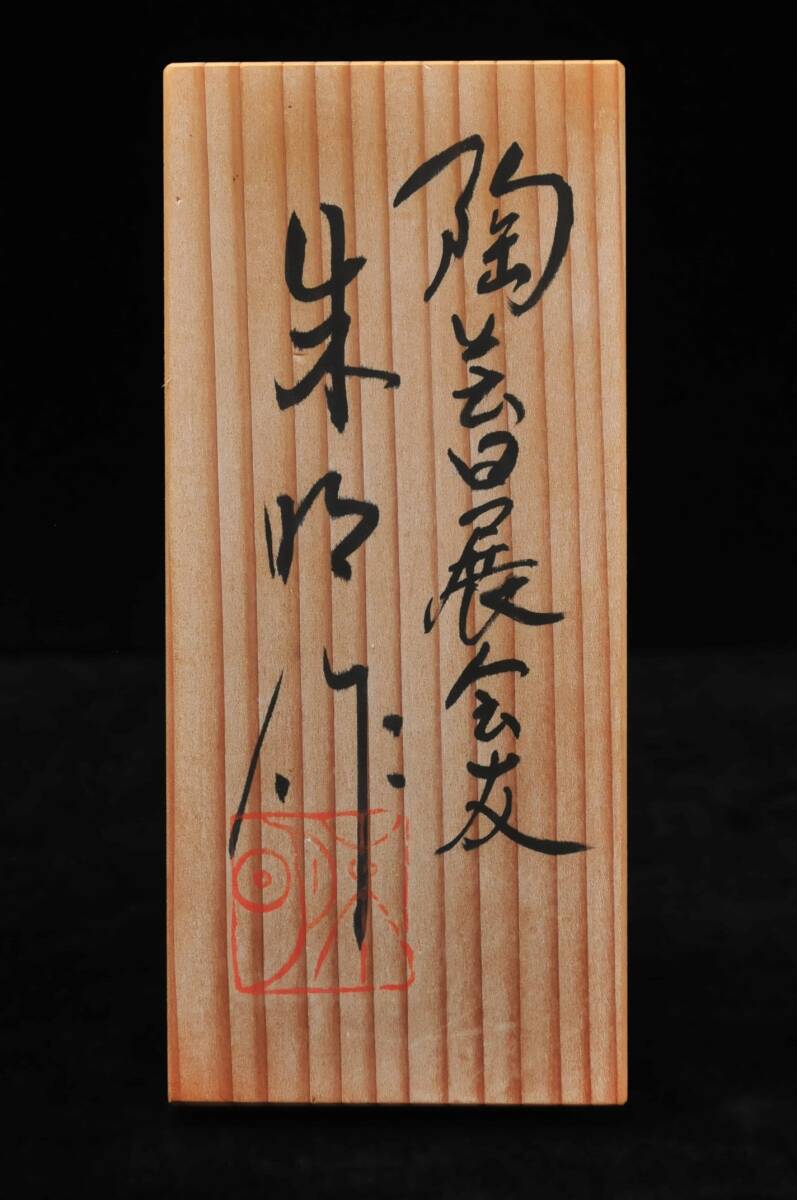 陶芸日展会友
朱明作